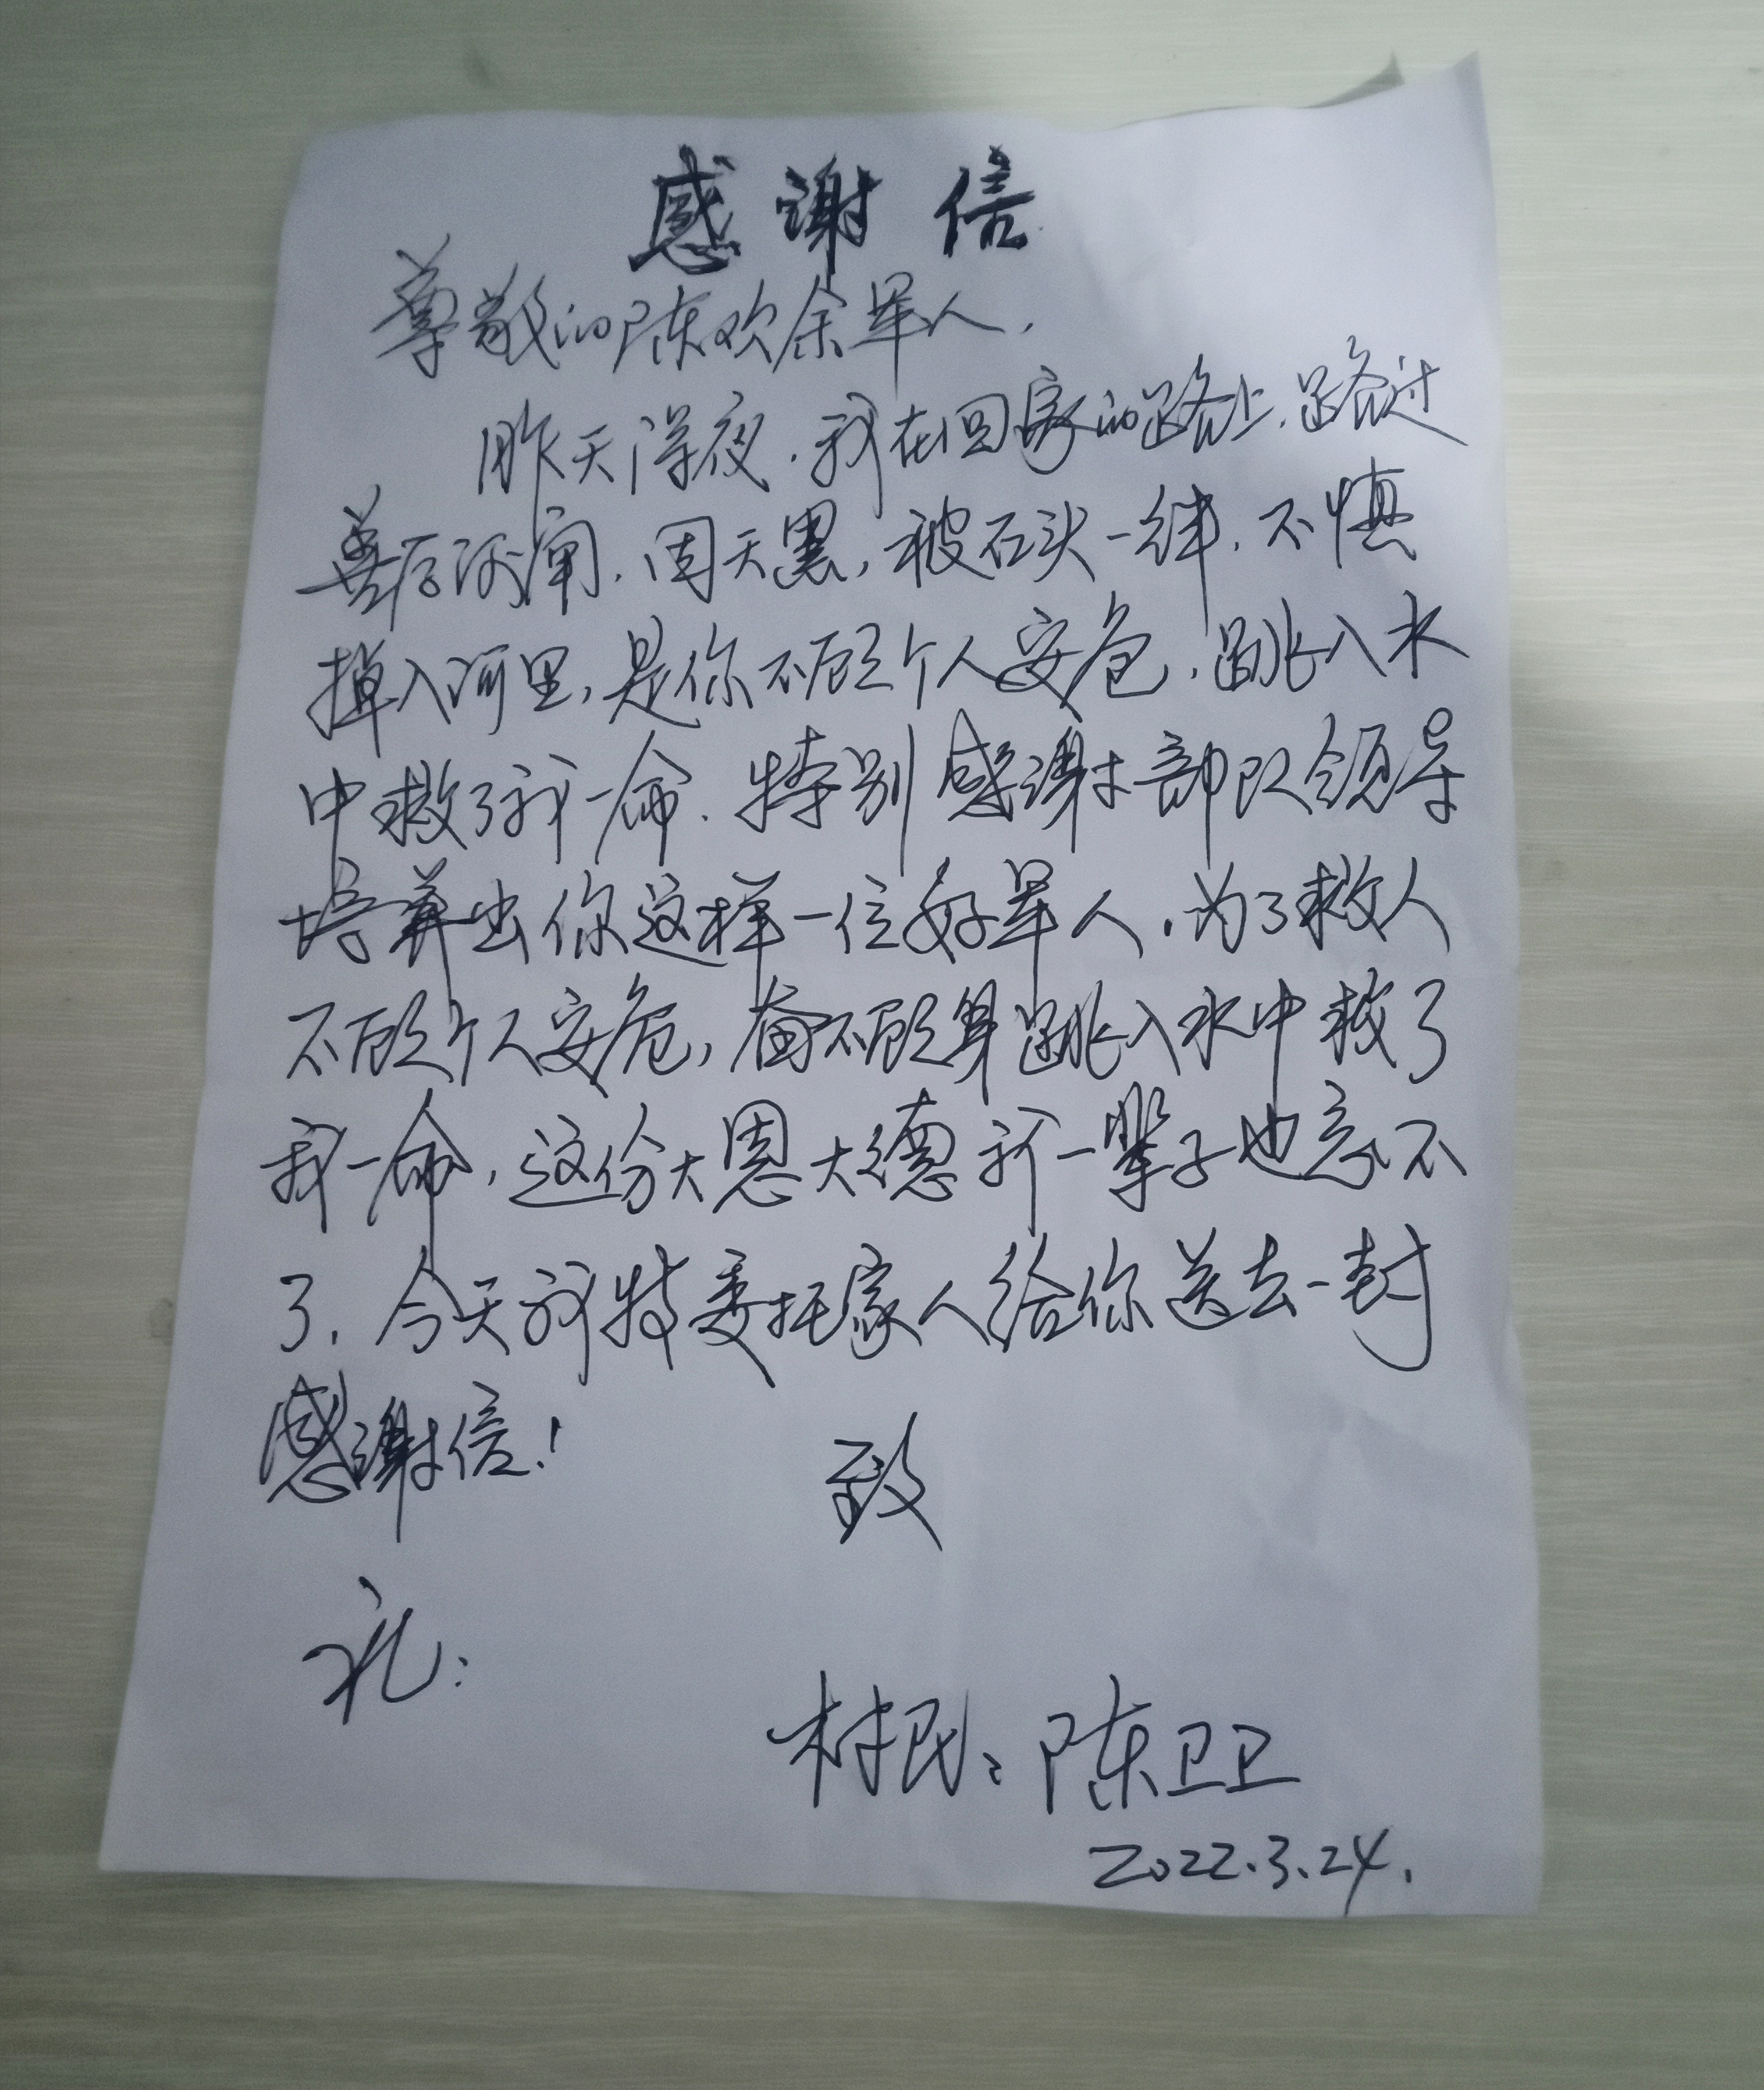 感谢信
尊敬的陈欢余军人,
昨天深夜.我在回家的路上,路过
河闸.因天黑,被石头一绊.不慎
掉入河里,是你不顾个人安危,跳入水
中救了我一命.特别感谢部队领导
培养出你这样一位好军人.为了救人
不顾个人安危,奋不顾身跳入水中救了
我一命,这份大恩大德我一辈子也忘不
了.今天我特委托家人给你送去一封
感谢信!
致
礼:
村民:陈卫卫
2022.3.24.